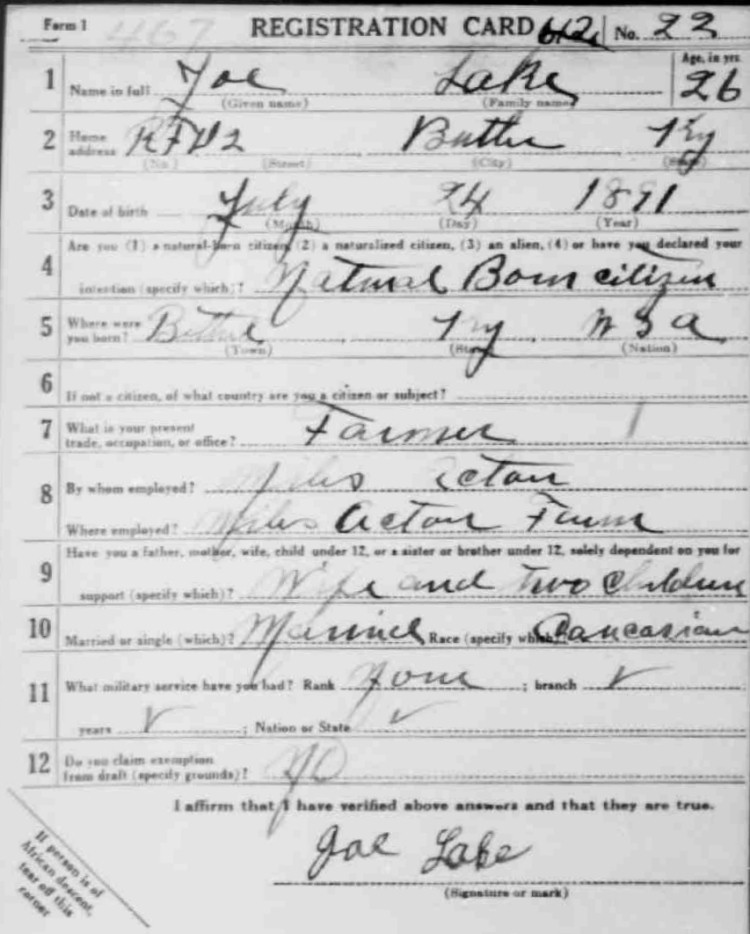 Form 1 467 REGISTRATION CARD 612 No. 22
1 Name in full Joe Lake Age, in yrs 26
(Given name) (Family name)
2 Home address RFD 2 Butler Ky
(No.) (Street) (City) (State)
3 Date of birth July 24 1891
(Month) (Day) (Year)
4 Are you (1) a natural-born citizen, (2) a naturalized citizen, (3) an alien, (4) or have you declared your
intention (specify which)? Natural Born citizen
5 Where were you born? Butler Ky USA
(Town) (State) (Nation)
6 If not a citizen, of what country are you a citizen or subject?
7 What is your present trade, occupation, or office? Farmer 1
8 By whom employed? Miles Acton
Where employed? Miles Acton Farm
9 Have you a father, mother, wife, child under 12, or a sister or brother under 12, solely dependent on you for
support (specify which)? Wife and two Children
10 Married or single (which)? Married Race (specify which)? Caucasian
11 What military service have you had? Rank None ; branch ✓
years ✓ ; Nation or State ✓
12 Do you claim exemption from draft (specify grounds)? NO
I affirm that I have verified above answers and that they are true.
Joe Lake
(Signature or mark)
If person is of
African descent,
tear off this
corner